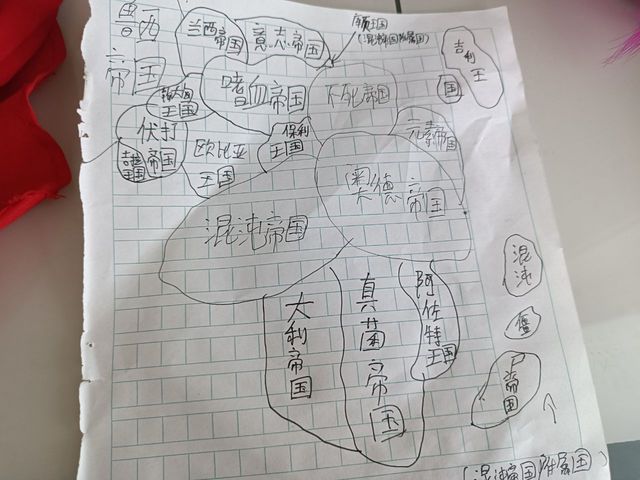 鲁西
帝国
兰西帝国
意志帝国
王国
(混沌帝国附属国)
吉利
王
国
嗜血帝国
不死帝国
王国
伏打
帝国
王国
欧比亚
王国
保利
王国
元素帝国
奥德帝国
混沌帝国
大利帝国
真菌帝国
阿佐特
王国
混沌
帝国
(混沌帝国附属国)